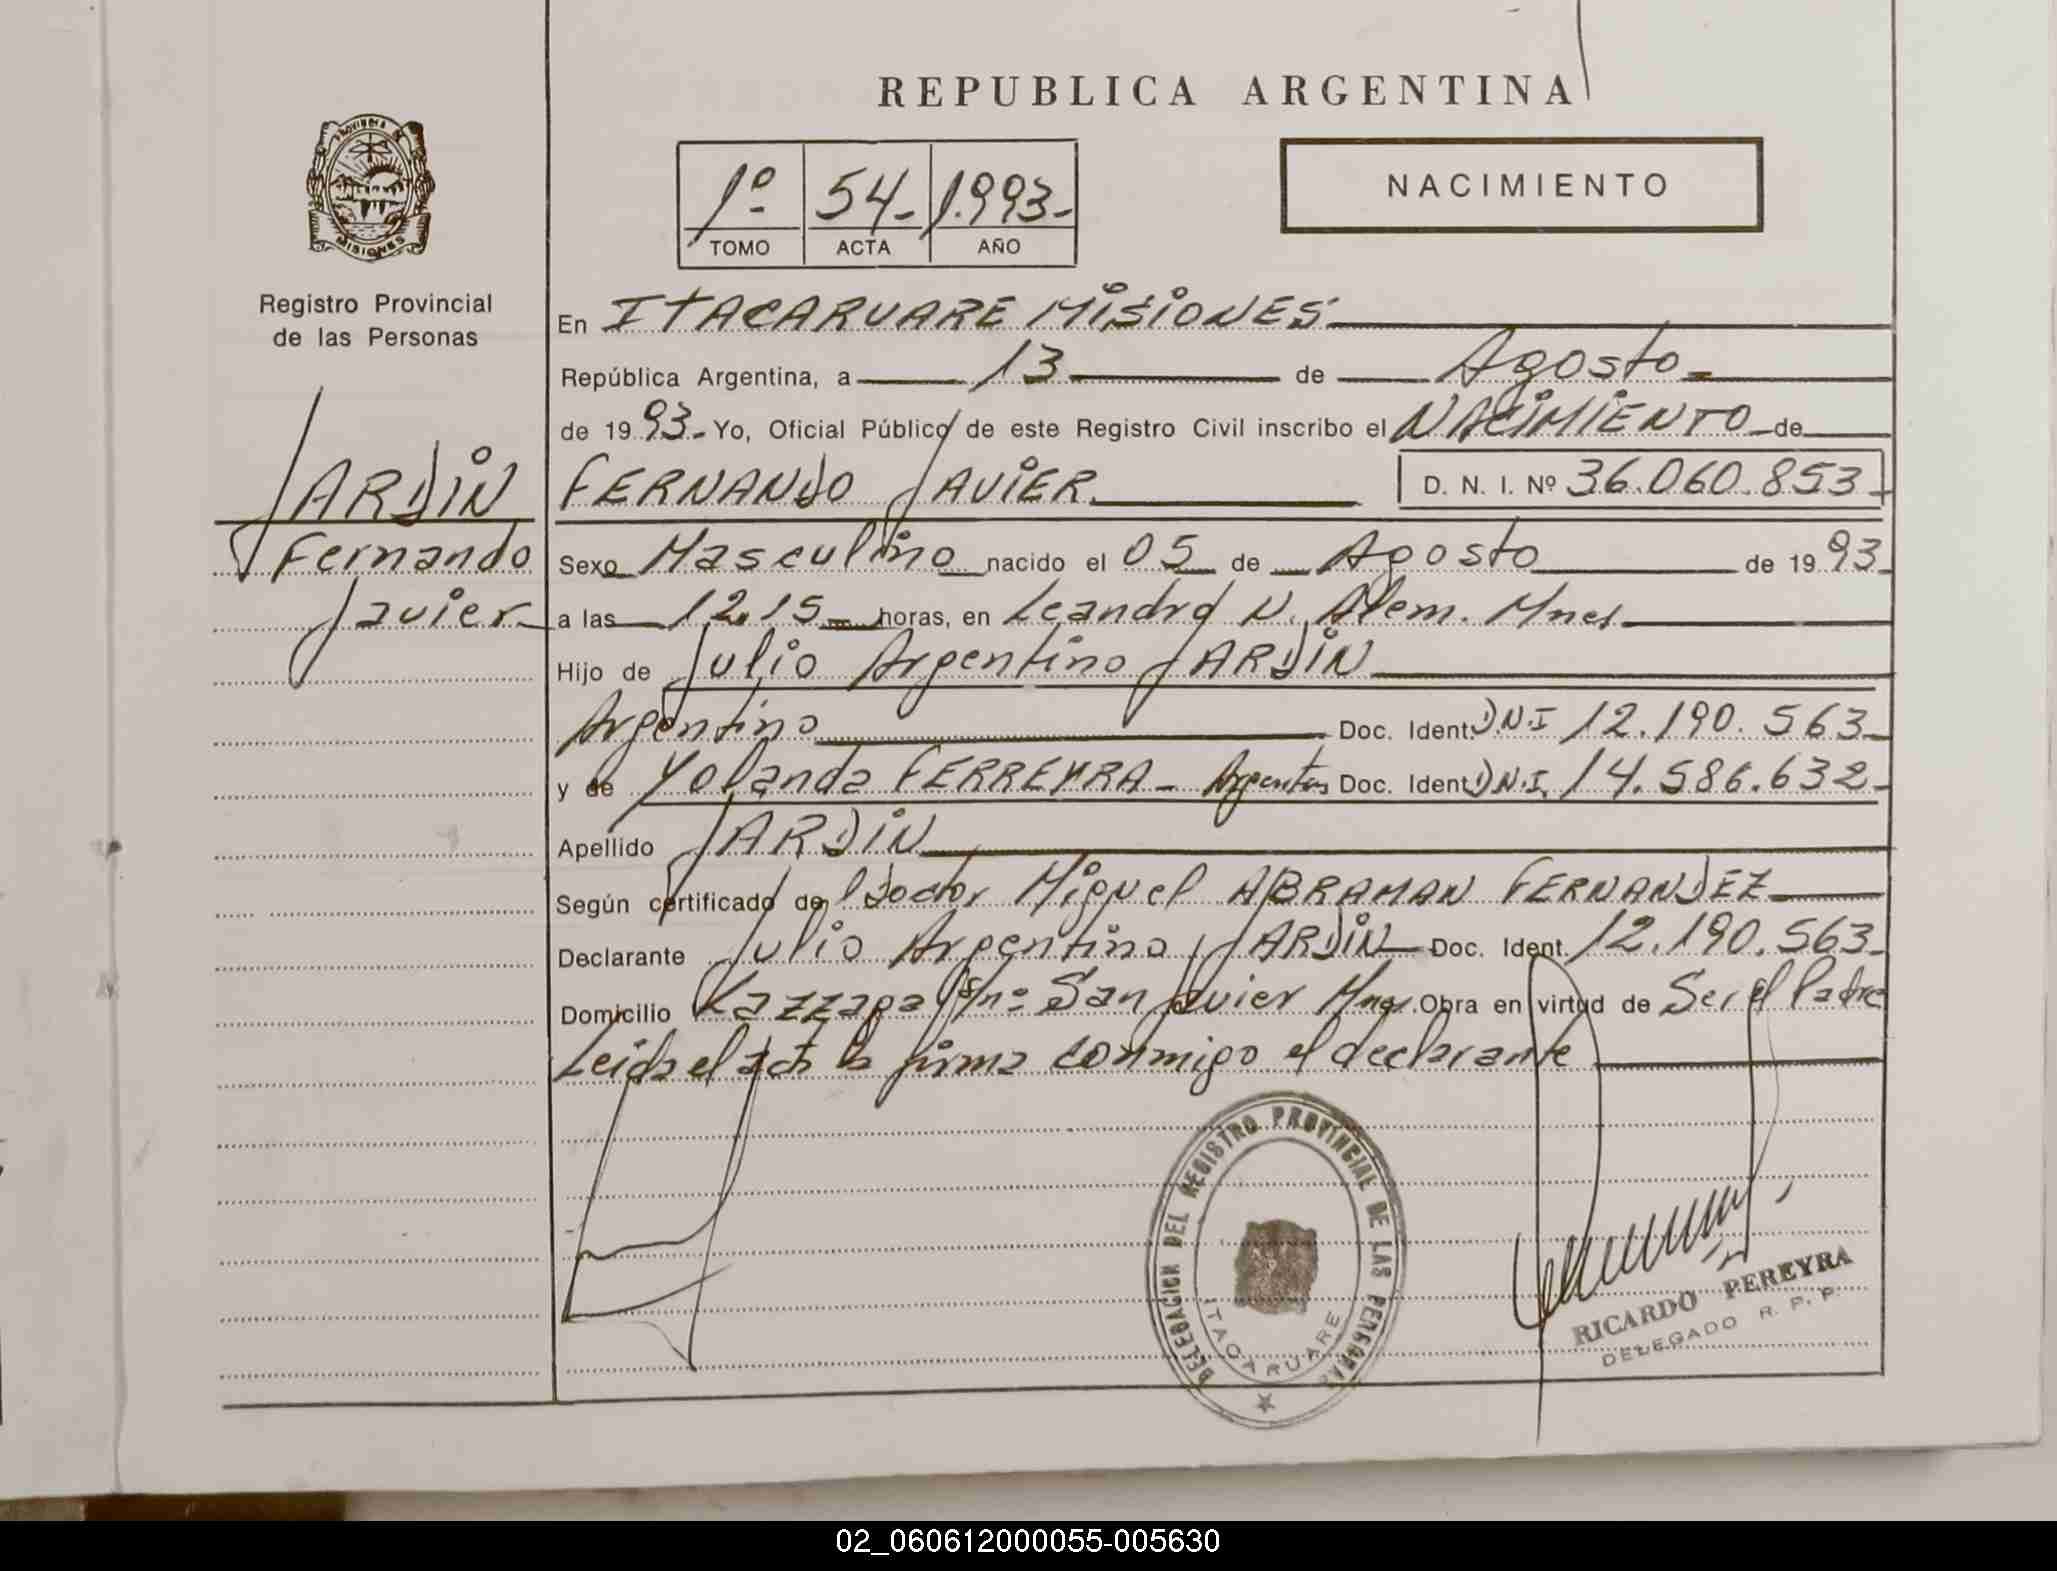 REPUBLICA ARGENTINA
PROVINCIA DE
MISIONES
Registro Provincial
de las Personas
1º- 54- 1.993-
TOMO ACTA AÑO
NACIMIENTO
En ITACARUARE MISIONES
República Argentina, a 13 de Agosto
de 19 93 Yo, Oficial Público de este Registro Civil inscribo el NACIMIENTO de
FERNANDO JAVIER D. N. I. Nº 36.060.853
JARDIN
Fernando
Javier
Sexo Masculino nacido el 05 de Agosto de 19 93
a las 12.15 horas, en Leandro N. Alem. Mnes.
Hijo de Julio Argentino JARDIN
Argentino Doc. Ident. D.N.I 12.190.563
y de Yolanda FERREYRA - Argentina Doc. Ident. D.N.I. 14.586.632
Apellido JARDIN
Según certificado de Doctor Miguel ABRAMAN FERNANDEZ
Declarante Julio Argentino JARDIN Doc. Ident. 12.190.563
Domicilio S/nº San Javier Mnes. Obra en virtud de Ser el Padre
Leida el acta la firma conmigo el declarante
DELEGACION DEL REGISTRO PROVINCIAL DE LAS PERSONAS
ITACARUARE
RICARDO PEREYRA
DELEGADO R. P. P.
02_060612000055-005630